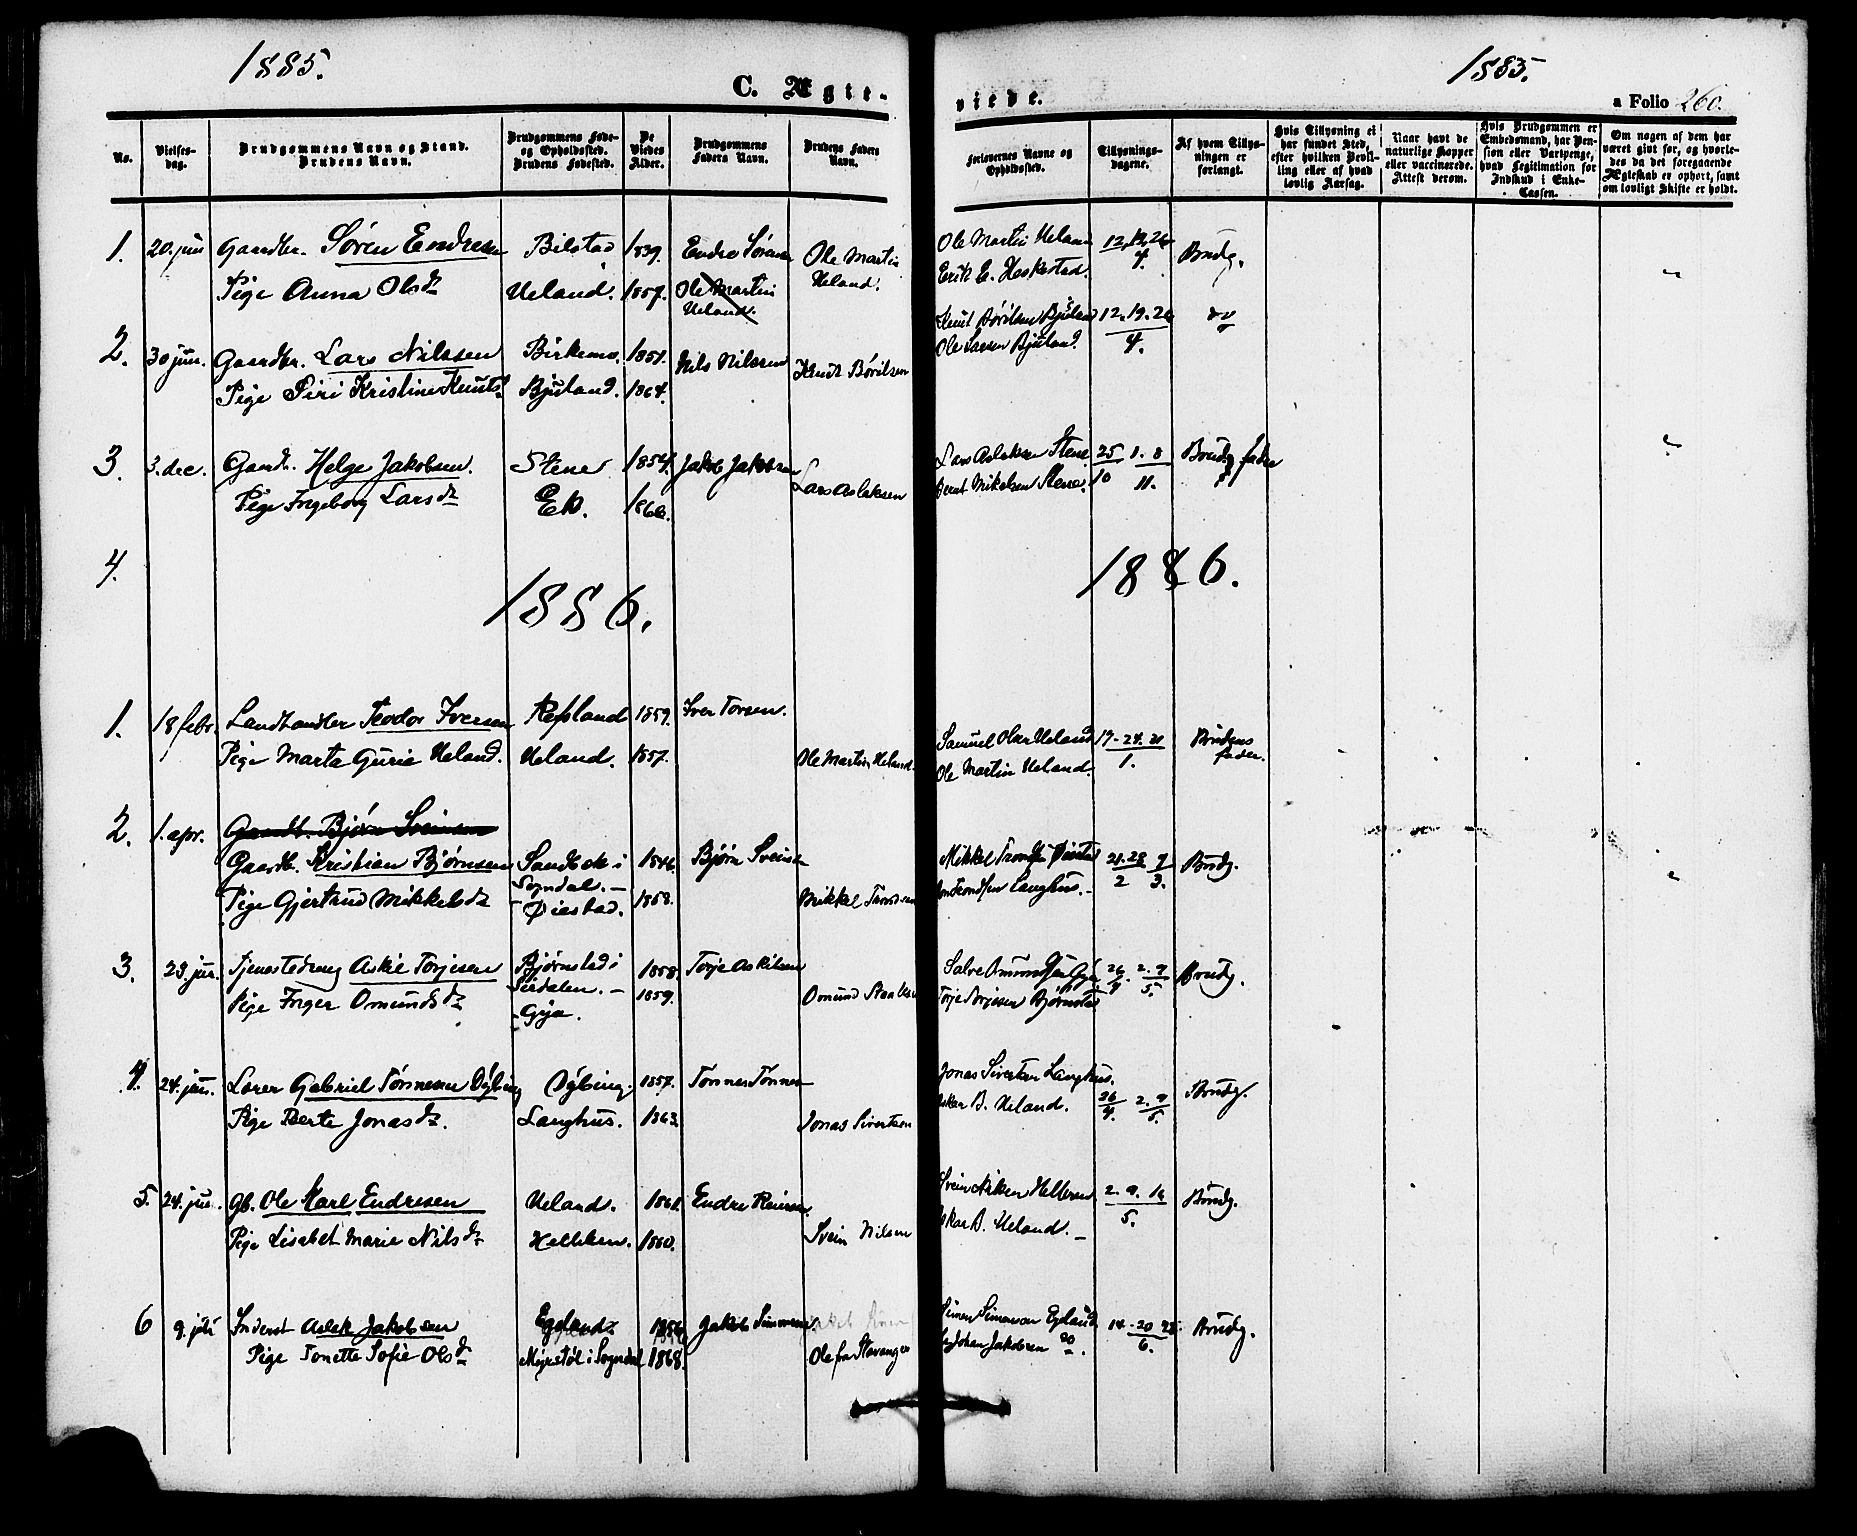 1885.
C. Ægte-
No.
Vielses-
dag.
Brudgommens Navn og Stand.
Brudens Navn.
Brudgommens Føde-
og Opholdssted.
Brudens Fødested.
De
Viedes
Alder.
Brudgommens
Faders Navn.
Brudens Faders
Navn.
1. 20. juni Gaardbr. Søren Endresen Bilstad 1839. Endre Sørensen Ole Martin
Ueland.
Pige Anna Olsdr Ueland. 1857. Ole Martin
Ueland.
2. 30 jun. Gaardbr. Lars Nilssen Birkemo. 1851. Nils Nilssen Knut Børilsen
Pige Siri Kristine Knutsdr Bjuland. 1864.
3. 3. dec. Gaardbr. Helge Jakobsen. Stene 1854. Jakob Jakobsen Lars Aslaksen
Pige Ingeborg Larsdr Ek. 1866.
4.
1886.
1. 18 febr. Landhandler Teodor Iversen Refsland 1859. Iver Torsen.
Pige Marta Gurie Ueland. Ueland. 1857. Ole Martin Ueland.
2. 1. apr. Gaardb. Bjørn Sveinsen
Gaardb. Kristian Bjørnsen Sandbek i
Sogndal. — 1846. Bjørn Sveinsen
Pige Gjertrud Mikkelsdr Øiestad. 1858. Mikkel Trondsen
3. 23. jun. Tjenestedreng Askil Torjesen Bjørnstad i
Sirdalen. — 1858. Torje Askilsen
Pige Inger Omundsdr Gya. 1859. Omund
4. 24. jun. Lærer Gabriel Tønnesen Dybing Dybing. 1857. Tønnes Tønnesen
Pige Berte Jonasdr. Langhus. 1863. Jonas Sivertsen
5. 24. jun. Gb. Ole Karl Endresen Ueland. 1861. Endre
Pige Lisabet Marie Nilsdr Helleren. 1860. Svein Nilsen
6 9. juli Inderst Aslak Jakobsen Egeland 1856 Jakob Simonsen
Pige Tonette Sofie Olsdr i Sogndal 1868. Ole fra Stavanger
1885.
viede.
a Folio 260.
Forlovernes Navne og
Opholdssted.
Tillysnings-
dagene.
Af hvem Tillys-
ningen er
forlangt.
Hvis Tillysning ei
har fundet Sted,
efter hvilken Bevil-
ling eller af hvad
lovlig Aarsag.
Naar havt de
naturlige Kopper
eller vaccinerede.
Attest derom.
Hvis Brudgommen er
Embedsmand, har Pen-
sion eller Vartpenge,
hvad Legitimation for
Indskud i Enke-
Cassen.
Om nogen af dem har
været gift før, og hvorle-
des da det foregaaende
Ægteskab er ophørt, samt
om lovligt Skifte er holdt.
Ole Martin Ueland 12. 19. 26 Brudg.
Erik E. Heskestad. 4.
Knut Børilsen Bjuland 12. 19. 26 do
Ole Larsen Bjuland. 4.
Lars Aslaksen Stene 25 1. 8 Brudg fader
Bernt Mikelsen Stene. 10 11.
1886.
Samuel Olsen Ueland 17. 24. 31 Brudens
fader.
Ole Martin Ueland. 1.
Mikkel Trondsen Øiestad 21. 28 7 Brudg.
Trondsen Langhus. — 2 3.
Salve Omundsen Gya 26 2. 9 Brudg.
Torje Torjesen Bjørnstad 4 5.
Jonas Sivertsen Langhus. Brudg.
Oskar B. Ueland. 26 2. 9
4. 5.
Svein Helleren 2. 9. 16 Brudg.
Oskar B. Ueland. — 5.
Simon Simonsen Egeland 14. 20. 28. Brudg.
Johan Jakobsen do. 6.